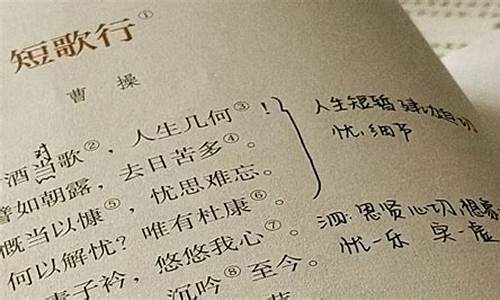 短歌行①
曹操
酒当歌②，人生几何③！
对
譬如朝露，去日苦多④。
慨当以慷⑤，忧思难忘。
何以解忧？唯有杜康⑥。
青子衿，悠悠我心⑦。
沉吟⑧至今。
人生短暂 建功
忧：细节
泗·思贤心切
忧一乐 实一虚